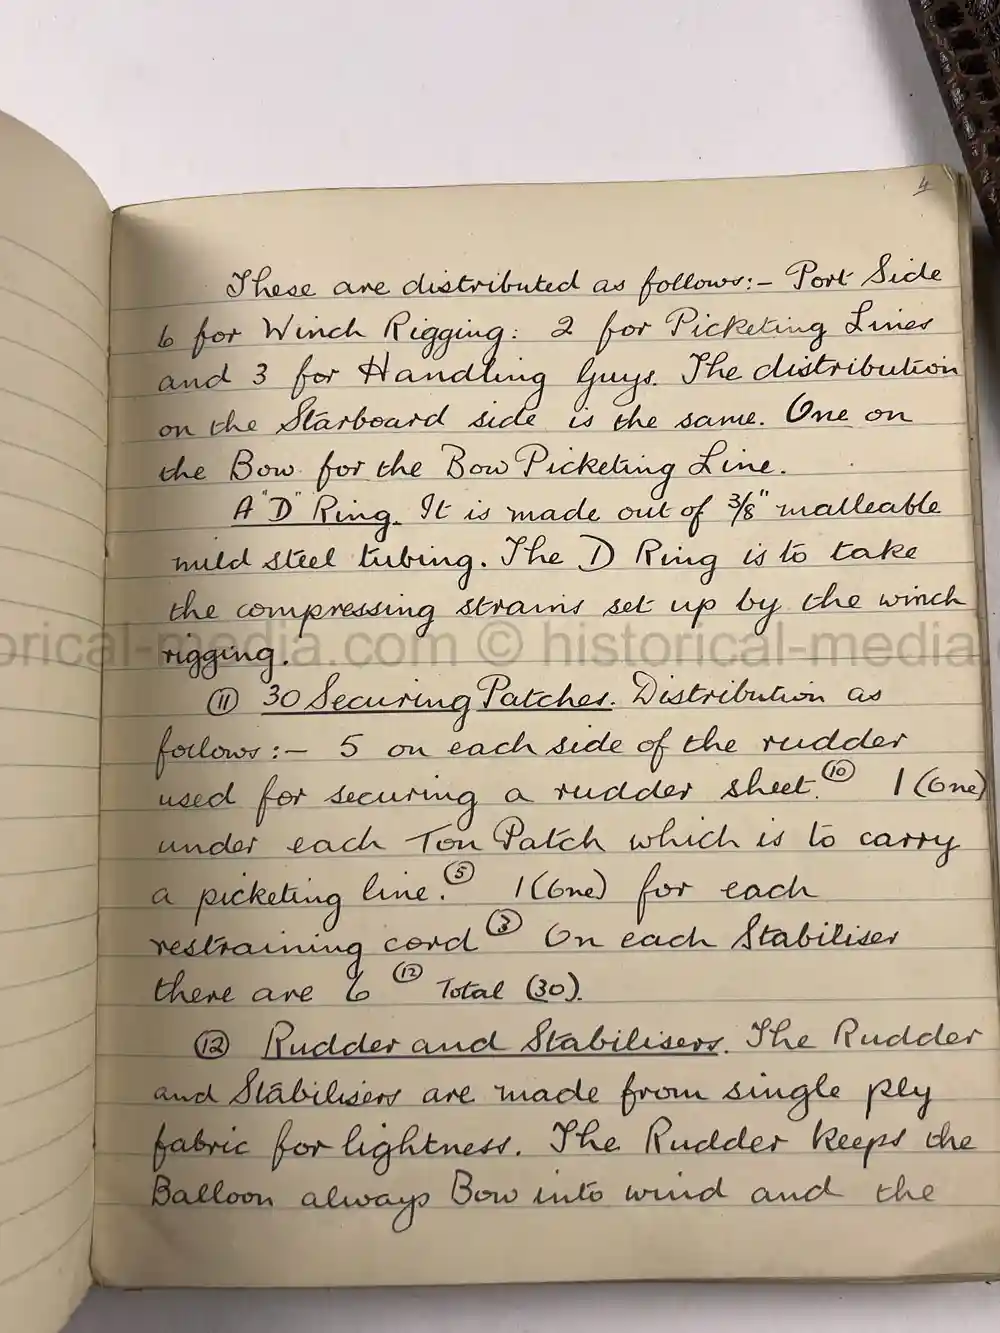 4
These are distributed as follows:- Port Side
6 for Winch Rigging: 2 for Picketing Lines
and 3 for Handling Guys. The distribution
on the Starboard side is the same. One on
the Bow for the Bow Picketing Line.
A "D" Ring. It is made out of 3/8" malleable
mild steel tubing. The D Ring is to take
the compressing strains set up by the winch
rigging.
orical-media.com © historical-media.
⑪ 30 Securing Patches. Distribution as
follows:- 5 on each side of the rudder
used for securing a rudder sheet. ⑩ 1 (One)
under each Ton Patch which is to carry
a picketing line. ⑤ 1 (One) for each
restraining cord ③ On each Stabiliser
there are 6 ⑫ Total (30).
⑫ Rudder and Stabilisers. The Rudder
and Stabilisers are made from single ply
fabric for lightness. The Rudder keeps the
Balloon always Bow into wind and the